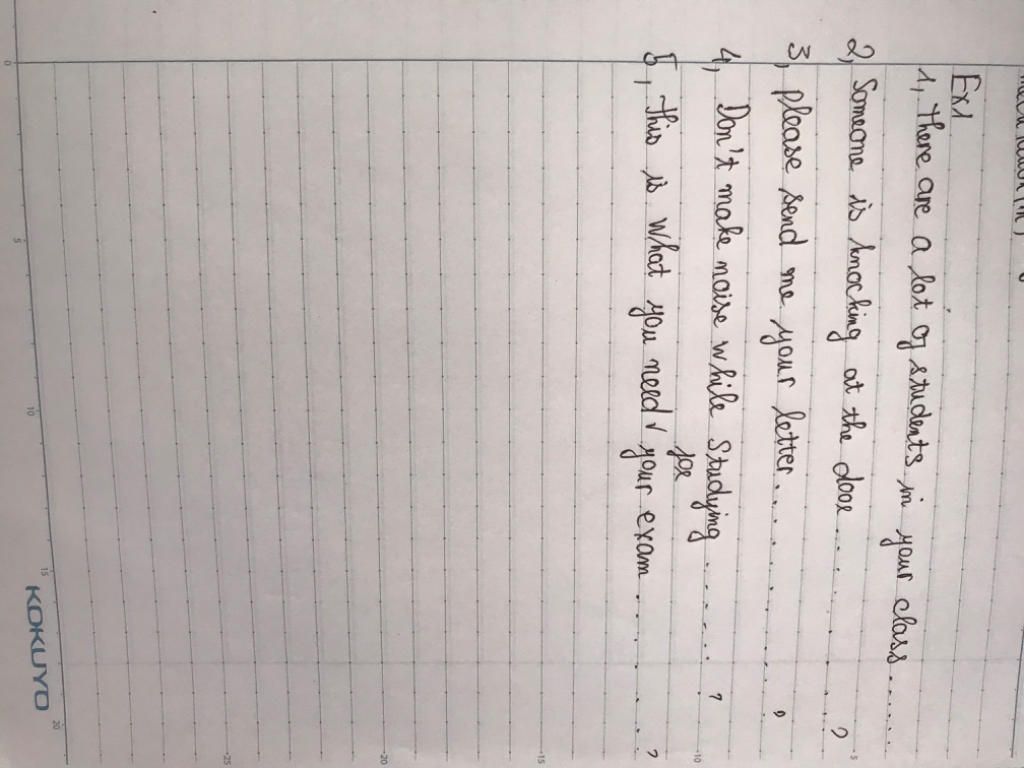 Ex1
1, There are a lot of students in your class......
2, Someone is knocking at the door.........?
3, please send me your letter.........?
4, Don't make noise while studying......?
for
5, This is what you need √ your exam.........?
KOKUYO
0
5
10
15
20
-5
-10
-15
-20
-25